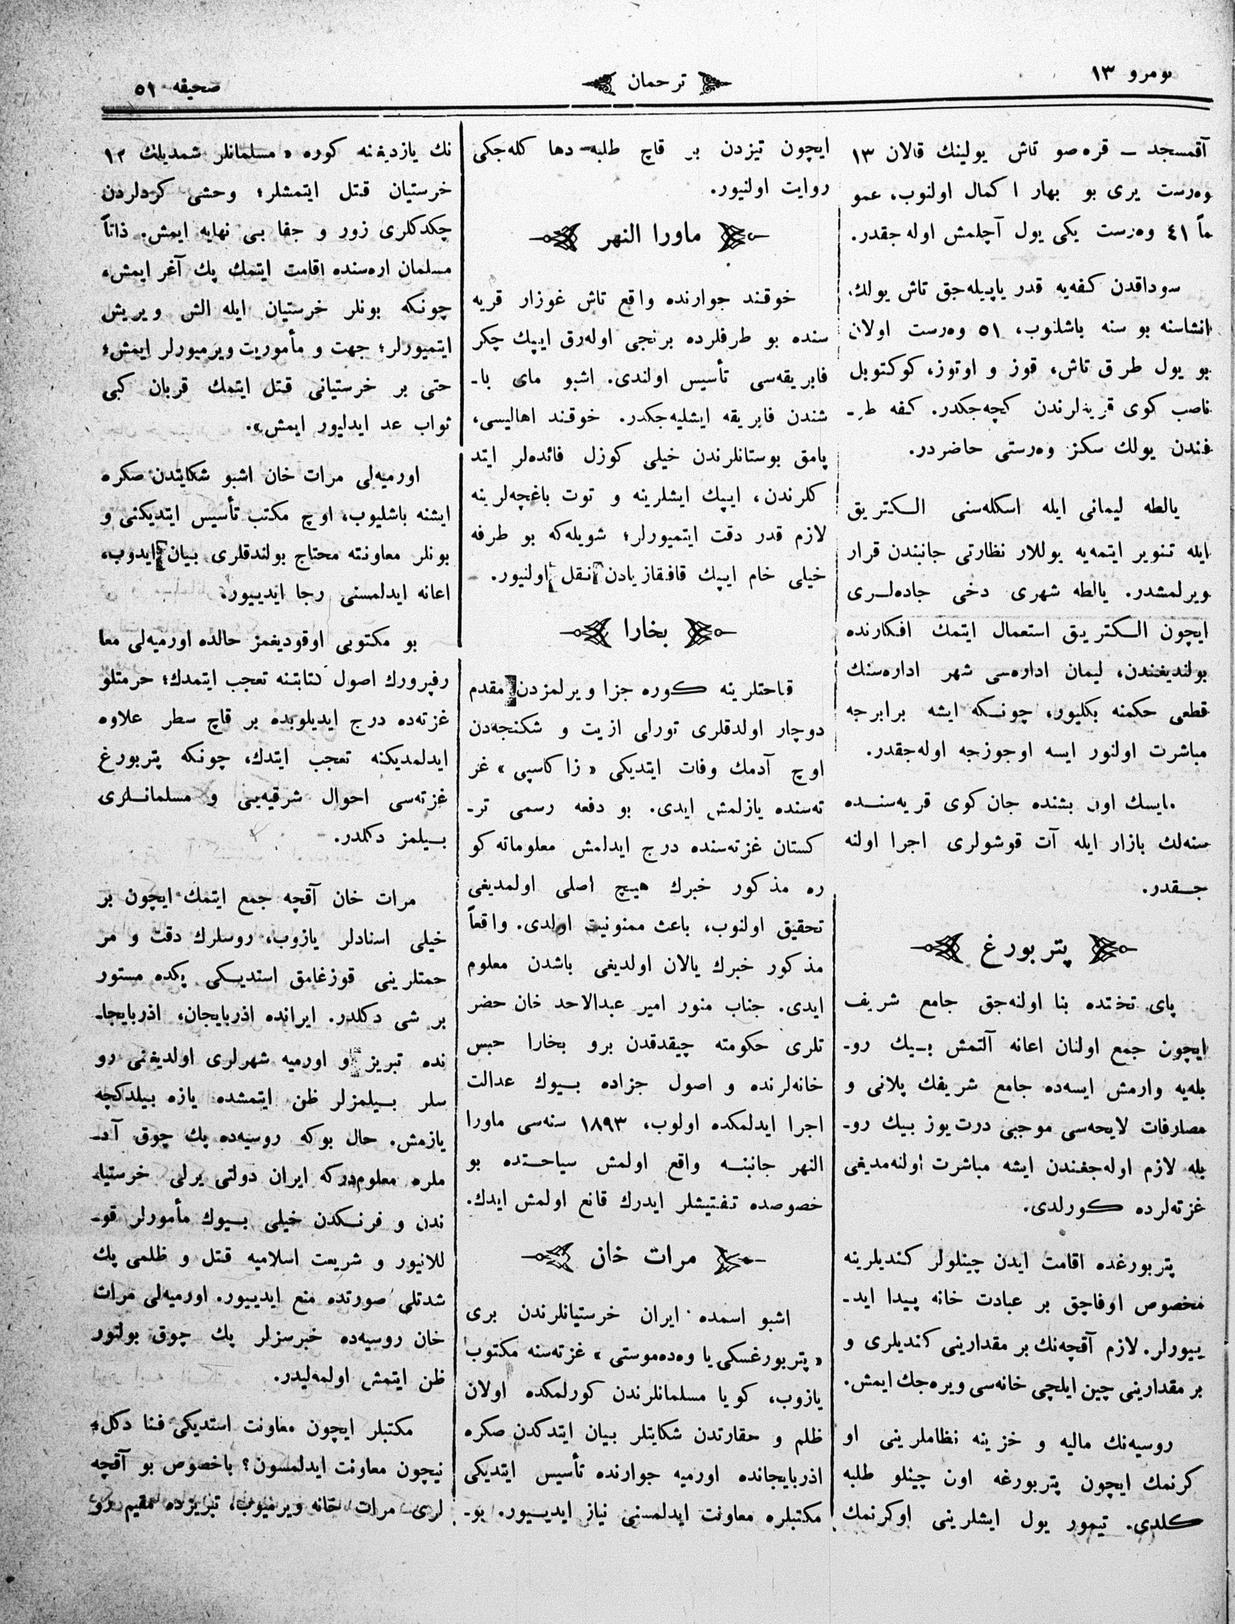 نومرو ١٣
ترجمان
صحیفه ٥١
آقمسجد ــ قره‌صو تاش یولینك قالان ١٣
وه‌رست یری بو بهار اكمال اولنوب، عمو
ماً ٤١ وه‌رست یكی یول آچلمش اوله‌جقدر.
سوداقدن كفه‌یه قدر یاپیله‌جق تاش یولك
انشاسنه بو سنه باشلنوب، ٥١ وه‌رست اولان
بو یول طرق تاش، قوز و اوتوز، كوكتوبل
ناصب كوی قریه‌لرندن كچه‌جكدر. كفه طر‌ـ
فندن یولك سكز وه‌رستی حاضردر.
یالطه لیمانی ایله اسكله‌سنی الـكتریق
ایله تنویر ایتمه‌یه یوللار نظارتی جانبندن قرار
ویرلمشدر. یالطه شهری دخی جاده‌لـری
ایچون الـكتریـق استعمال ایتمك افكارنده
بولندیغندن، لیمان اداره‌سی شهر اداره‌سنك
قطعی حكمنه بكلیور، چونـكه ایشه برابرجه
مباشرت اولنور ایسه اوجوزجه اوله‌جقدر.
مایسك اون بشنده جان‌كوی قریه‌سنـده
سنه‌لك بازار ایله آت قوشولری اجرا اولنه
جـقدر.
پتربورغ
پای تختده بنا اولنه‌جق جامع شریف
ایچون جمع اولنان اعانه آلتمش بـیك رو‌ـ
بله‌یه وارمش ایسه‌ده جامع شریفك پلانی و
مصارفات لایحه‌سی موجبی درت‌یوز بیك رو‌ـ
بله لازم اوله‌جغندن ایشه مباشرت اولنه‌مدیغی
غزته‌لرده كورلدی.
پتربورغده اقامت ایدن چینلولر كندیلرینه
مخصوص اوفاچق بر عبادت خانه پیدا اید‌ـ
ییورلر. لازم آقچه‌نك بر مقدارینی كندیلری و
بر مقدارینی چین ایلچی خانه‌سی ویره‌جك ایمش.
روسیه‌نك مالیه و خزینه نظاملرینی او
كرنمك ایچون پتربورغه اون چینلو طلبه
كلدی. تیمور یول ایشلرینی اوكرنمك
ایچون تیزدن بر قاچ طلبه دها كله‌جكی
روایت اولنیور.
ماورا النهر
خوقند جوارنده واقع تاش غوزار قریه
سنده بو طرفلرده برنجی اوله‌رق ایپك چكر
فابریقه‌سی تأسیس اولندی. اشبو مای با‌ـ
شندن فابریقه ایشلیه‌جكدر. خوقند اهالیسی،
پامق بوستانلرندن خیلی كوزل فائده‌لر ایتد
كلرندن، ایپك ایشلرینه و توت باغچه‌لرینه
لازم قدر دقت ایتمیورلر؛ شویله‌كه بو طرفه
خیلی خام ایپك قافقازیادن نقل اولنیور.
بخارا
قباحتلرینه كوره جزا ویرلمزدن مقدم
دوچار اولدقلری تورلی ازیت و شكنجه‌دن
اوچ آدمك وفات ایتدیكی «زاكاسپی» غز
ته‌سنده یازلمش ایدی. بو دفعه رسمی تر‌ـ
كستان غزته‌سنده درج ایدلمش معلوماته كو
ره مذكور خبرك هیـچ اصلی اولمدیغی
تحقیق اولنوب، باعث ممنونیت اولدی. واقعاً
مذكور خبرك یالان اولدیغی باشدن معلوم
ایدی. جناب منور امیر عبدالاحد خان حضر
تلری حكومته چیقدقدن برو بخارا حبس
خانه‌لرنده و اصول جزاده بـیوك عدالت
اجرا ایدلمكده اولوب، ١٨٩٣ سنه‌سی ماورا
النهر جانبنـه واقع اولمش سیاحـتده بو
خصوصده تفـتیشلر ایدرك قانع اولمش ایدك.
مرات خان
اشبو اسمده ایران خرستیانلرندن بری
«پتربورغسكی‌یا وه‌ده‌موستی» غزته‌سنه مكتوب
یازوب، كویا مسلمانلرندن كورلمكده اولان
ظلم و حقارتدن شكایتلر بیان ایتدكدن صكره
اذربایجانده اورمیه جوارنده تأسیس ایتدیكی
مكتبلره معاونت ایدلمسنی نیاز ایدیـیور. بو‌ـ
نك یازدیغنه كوره «مسلمانلر شمدیلك ١٢
خرستیان قـتل ایتمشلر؛ وحشی كردلردن
چكدكلری زور و جفا بی نهایه ایمش. ذاتاً
مسلمان اره‌سنده اقامت ایتمك پك آغر ایمش،
چونكه بونلر خرستیان ایله الش ویریش
ایتمیورلر؛ جهت و مأموریت ویرمیورلر ایمش؛
حتی بر خرستیانی قتل ایتمك قربان كبی
ثواب عد ایدلیور ایمش».
اورمیه‌لی مرات خان اشبو شكایتدن صكره
ایشنه باشلیوب، اوچ مكتب تأسیس ایتدیكنی و
بونلر معاونته محتاج بولندقلری بیان ایدوب،
اعانه ایدلمسنی رجا ایدییور.
بو مكتوبی اوقودیغمز حالده اورمیه‌لی معا
رفپرورك اصول كتابتنه تعجب ایتمدك؛ حرمتلو
غزته‌ده درج ایدیلوبده بر قاچ سطر علاوه
ایدلمدیكنه تعجب ایتدك، چونكه پتربورغ
غزته‌سی احوال شرقیه‌یی و مسلمانـلری
بـیلمز دكلدر.
مرات خان آقچه جمع ایتمك ایچون بر
خیلی اسنادلر یازوب، روسلرك دقت و مر
حمتلرینی قوزغامق استدیـكی پكده مستور
بر شی دكلدر. ایرانده اذربایجان، اذربایجا‌ـ
نده تبریز و اورمیه شهرلری اولدیغنی رو
سلر بـیلمزلر ظن ایتمشده یازه بیلدكچه
یازمش. حال بوكه روسیه‌ده پك چوق آد‌ـ
ملره معلومدركه ایران دولتی یرلی خرستیا
ندن و فرنـكدن خیلی بـیوك مأمورلر قو‌ـ
للانیور و شریعت اسلامیه قـتل و ظلمی پك
شدتلی صورتده منع ایدییور. اورمیه‌لی مرات
خان روسیه‌ده خبرسزلر پك چوق بولنور
ظن ایتمش اولمه‌لیدر.
مكتبلر ایچون معاونت استدیكی فنا دكل؛
نیچون معاونت ایدلمسون؟ باخصوص بو آقچه
لری مرات خانه ویرمیوب، تبریزده مقیم رو